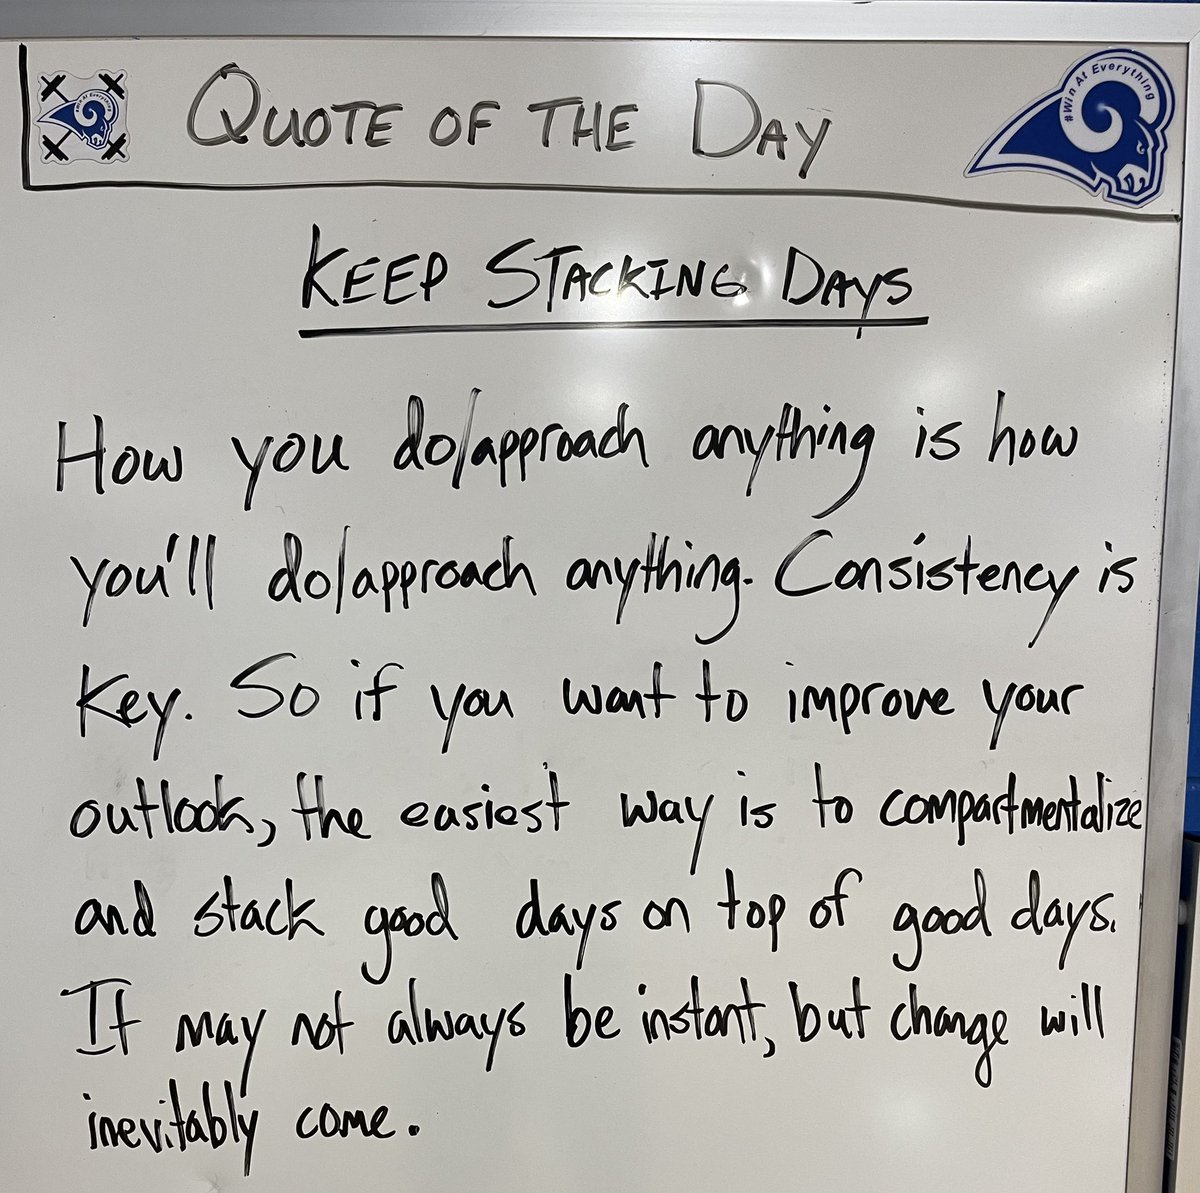 QUOTE OF THE DAY
#Win At Everything
KEEP STACKING DAYS
How you do/approach anything is how
you'll do/approach anything. Consistency is
Key. So if you want to improve your
outlook, the easiest way is to compartmentalize
and stack good days on top of good days.
It may not always be instant, but change will
inevitably come.